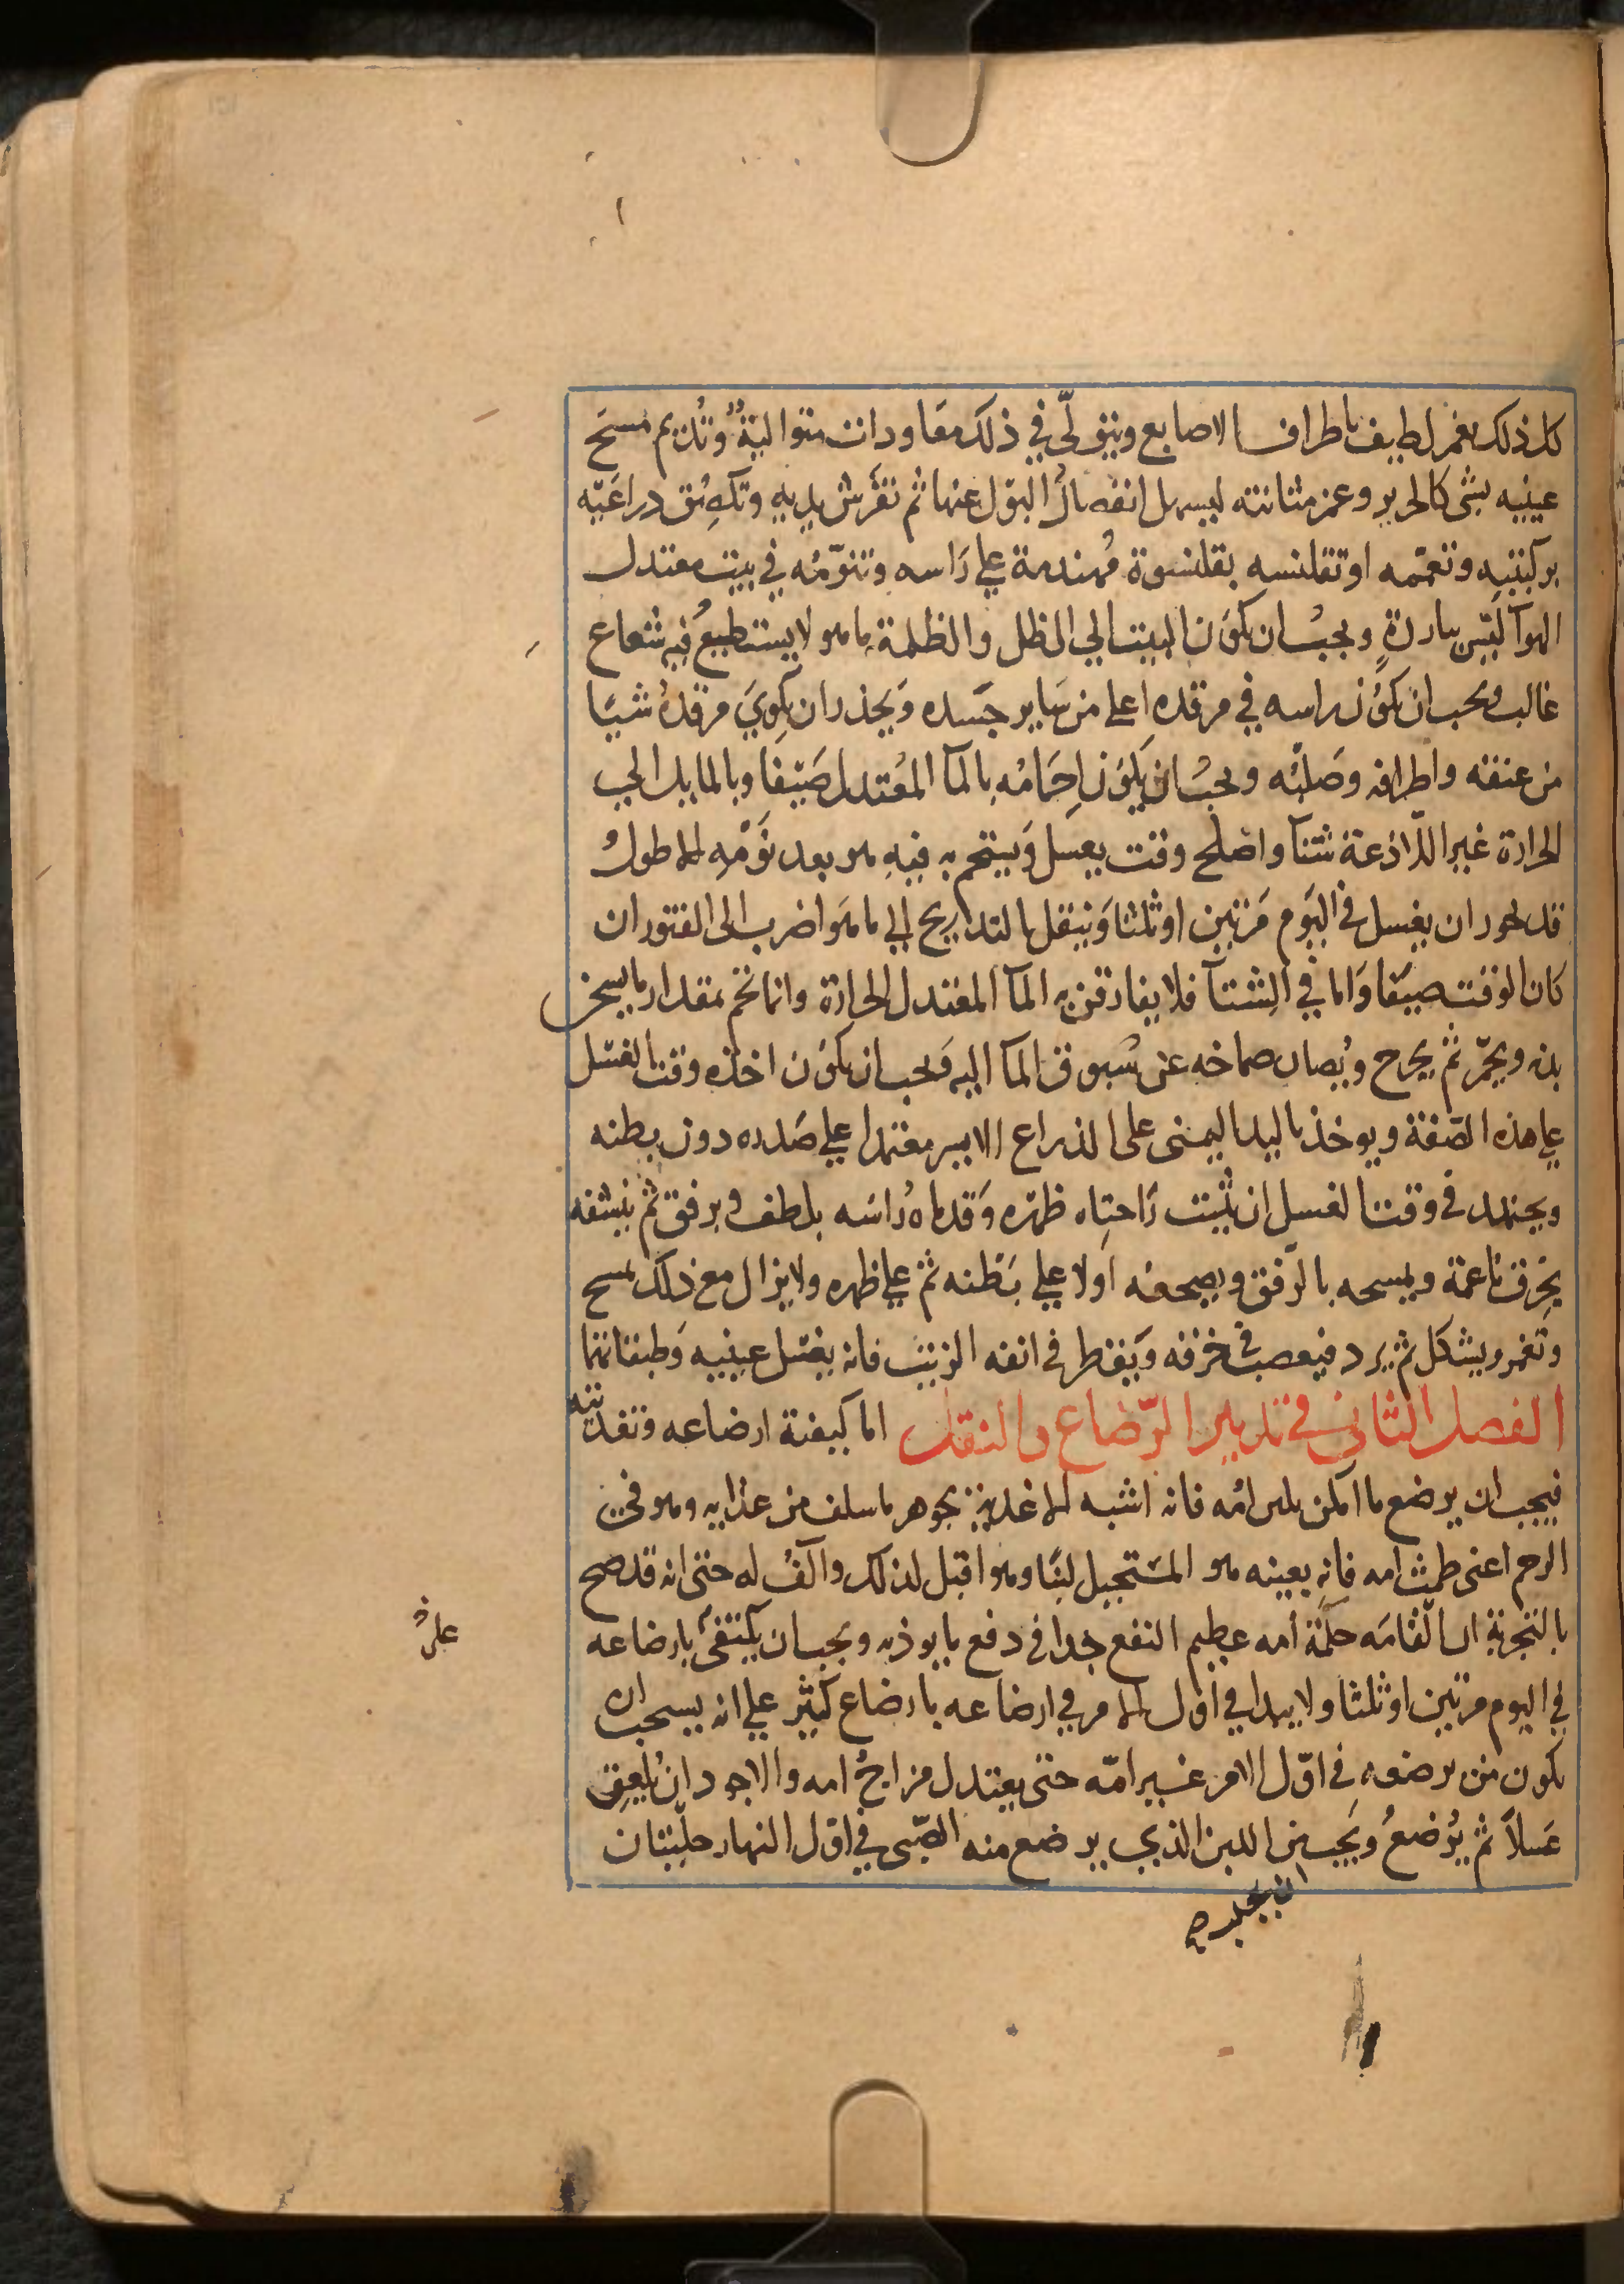 كل ذلك بغمز لطيف باطراف الاصابع ويتولّى في ذلك معاودات متوالية وتديم مسح
عينيه بشى كالحرير وغمز مثانته ليسهل انفصال البول عنها ثم تفرش يديه وتلصق دراعيه
بركبتيه وتعممه او تقلنسه بقلنسوة مهندمة على راسه وتنوّمه في بيت معتدل
الهوآ ليس بباردةٍ ويجب ان يكون البيت الي الظل والظلمة ماهو لا يستطيع فيه شعاع
غالب ويجب ان يكون راسه في مرقده اعلى من ساير جسده ويحذر ان يلوي مرقده شيئا
من عنقه واطرافه وصلبه ويجب ان يكون احمامه بالمآ المعتدل صيفا وبالمايل الي
الحرارة غير اللاذعة شتآ واصلح وقت يغسل ويستحم به فيه هو بعد نومه الاطول
قد يجوز ان يغسل في اليوم مرتين او ثلثا وينتقل بالتداريج الي ماهو اضرب الى الفتور ان
كان الوقت صيفا واما في الشتآ فلا يفارقن به المآ المعتدل الحرارة وانما تحم بمقدار ما يسخن
بدنه ويحمّر ثم يخرج ويصان صماخه عن سبوق المآ اليه ويجب ان يكون اخذه وقت الغسل
على هذه الصفة ويوخذ باليد اليمنى على الذراع الايسر معتمدا على صدره دون بطنه
ويجتهد في وقت الغسل ان تثبت راحتاه ظهره وقدماه راسه بلطف وبرفق ثم ينشفه
بخرق ناعمة ويمسحه بالرّفق ويضجعه اولا على بطنه ثم على ظهره ولا يزال مع ذلك يمسح
وتغمز ويشكل ثم يرد فيعصب في خرقة ويقطر في انفه الزيت فانه يغسل عينيه وطبقاتهما
الفصل الثاني في تدبير الرّضاع والنقل اما كيفية ارضاعه وتغذيته
فيجب ان يرضع ما امكن بلبن امّه فانه اشبه الاغذية بجوهر ما سلف من غذايه وهو في
الرحم اعنى طمث امه فانه بعينه هو المستحيل لبنًا وهو اقبل لذلك وآلف له حتى انه قد صح
بالتجربة ان القامه حلمة أمه عظيم النفع جدا في دفع ما يوذيه ويجب ان يكتفى بارضاعه
في اليوم مرتين او ثلثا ولا يبدا في اول الامر في ارضاعه بارضاع كثير على انه يستحب ان
يكون من يرضعه في اوّل الامر غير امّه حتى يعتدل مزاج امه والاجود ان يلعق
عسلاً ثم يرضع ويجب من اللبن الذي يرضع منه الصّبى في اوّل النهار حلبتان
ان يحلب